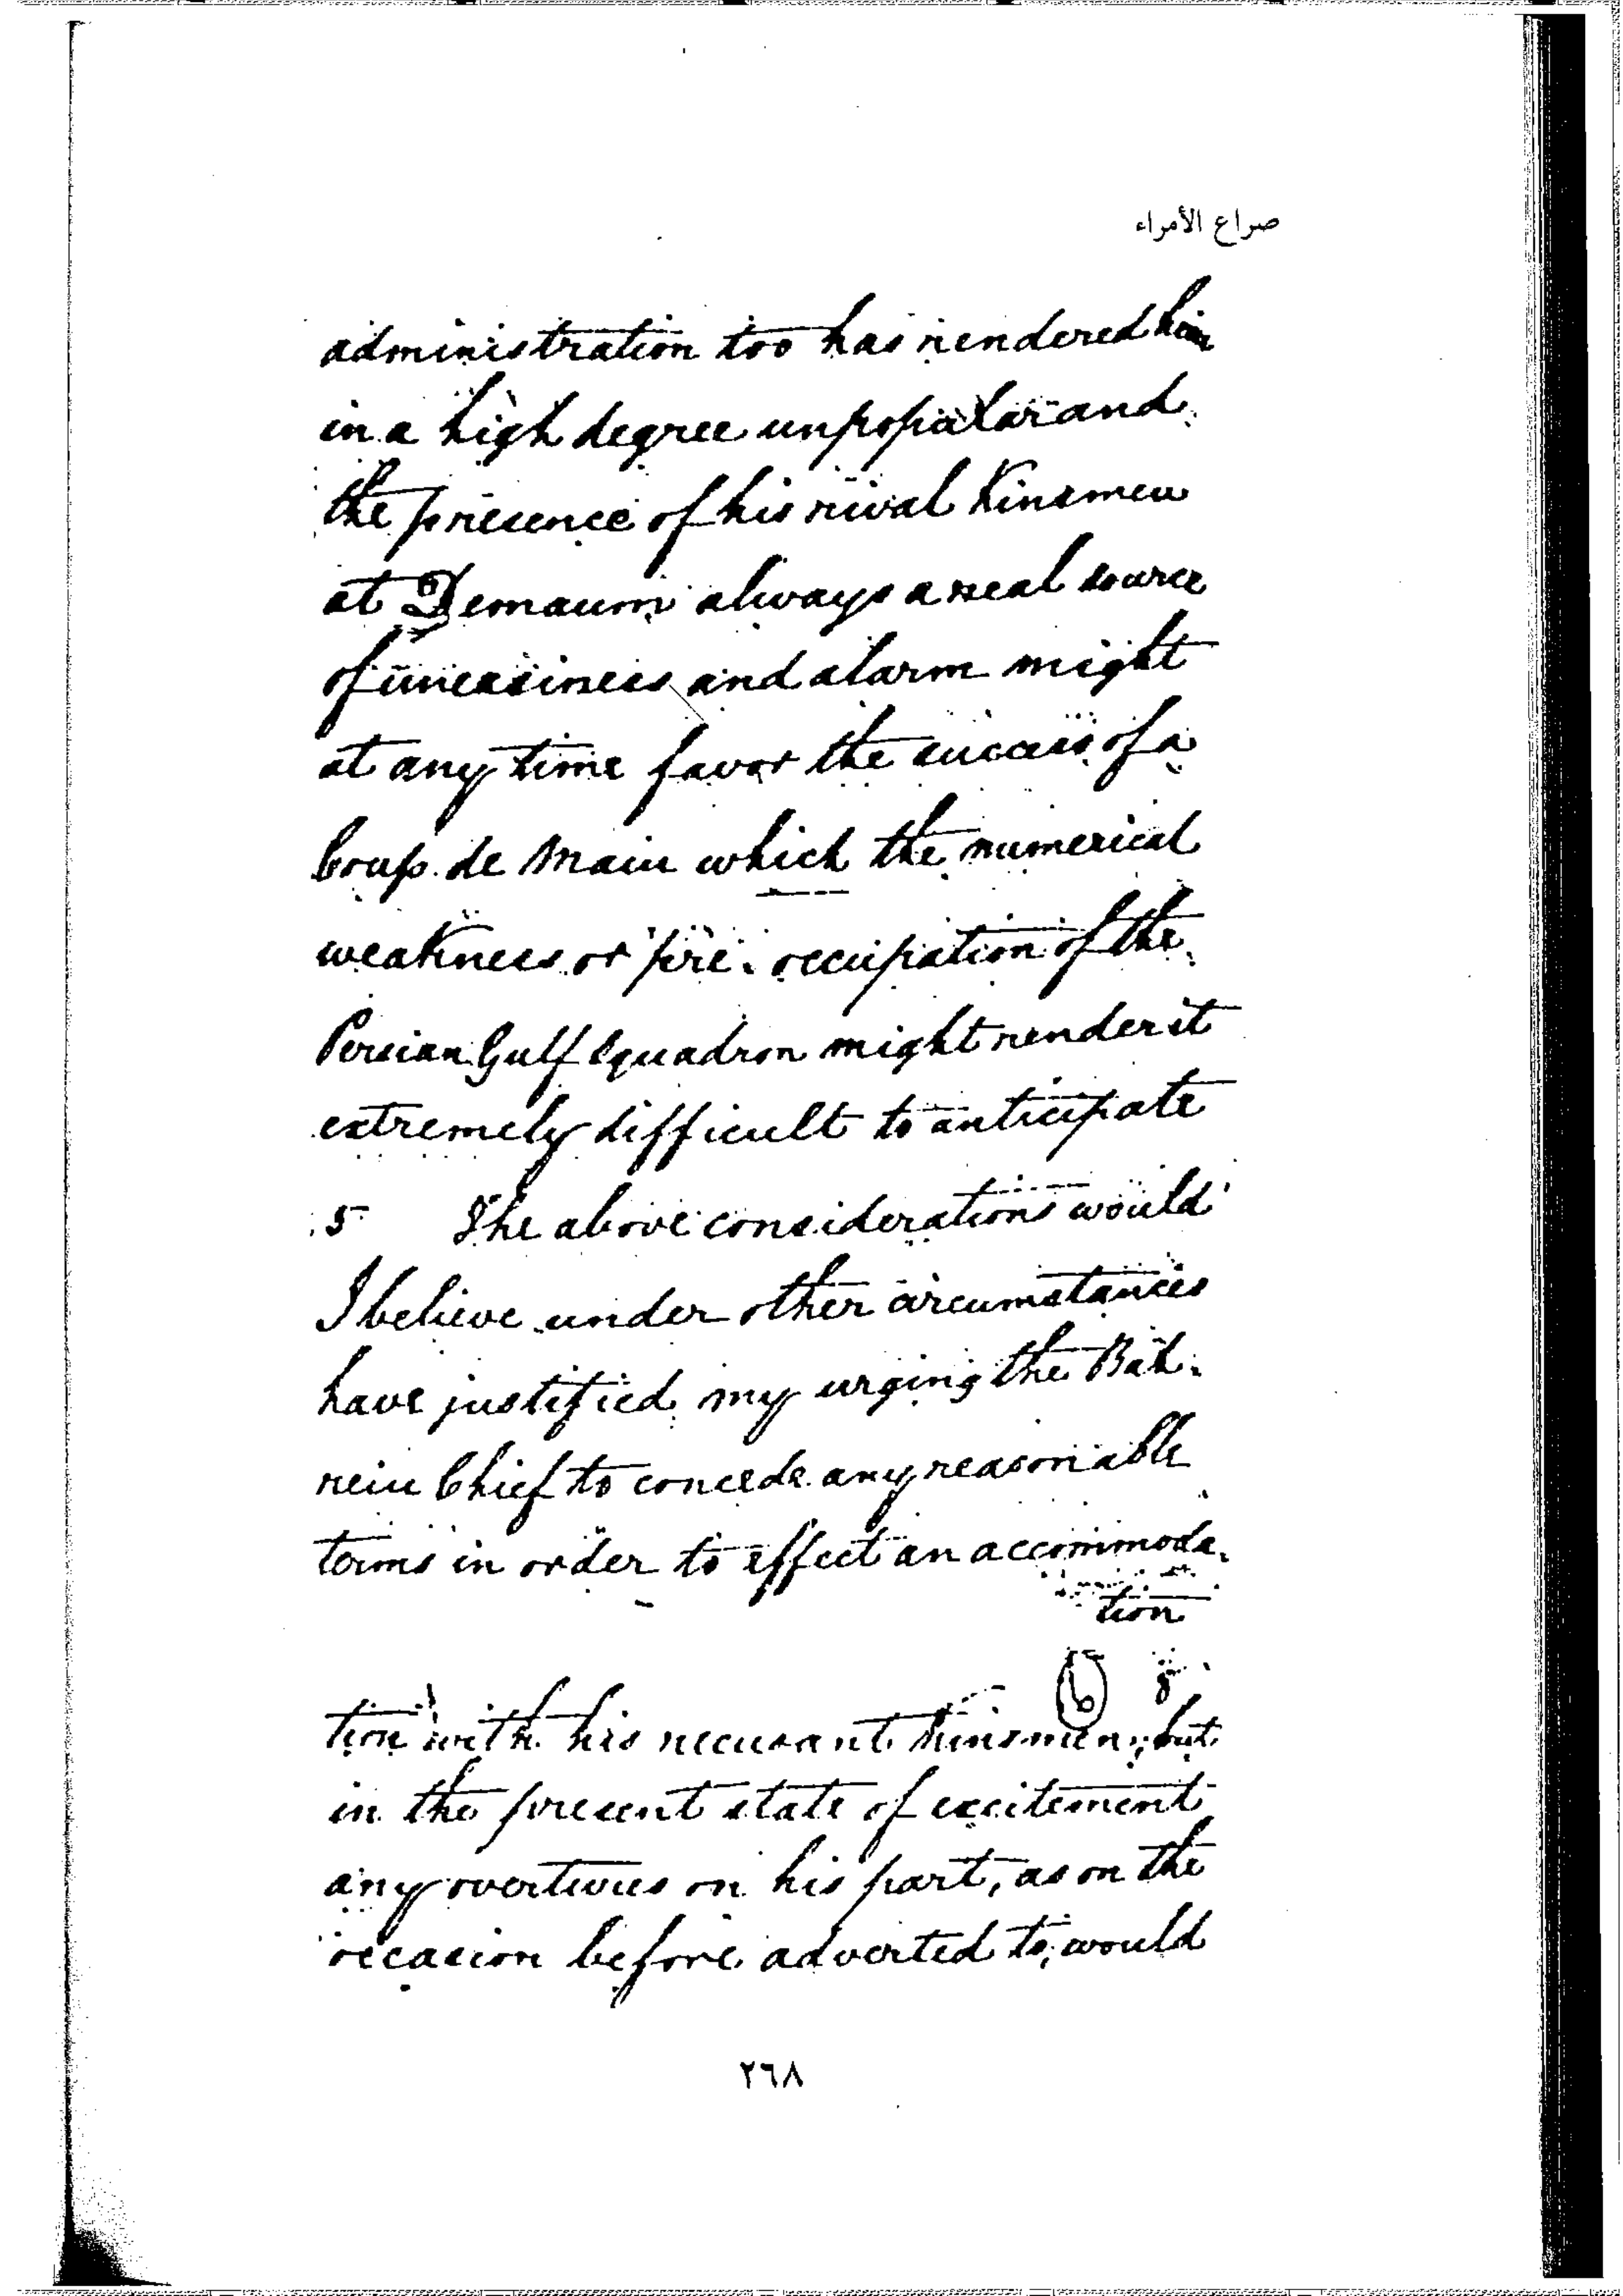 صراع الأمراء
administration too has rendered him
in a high degree unpopular and
the presence of his rival Kinsmen
at Demaum always a real source
of uneasiness and alarm might
at any time favor the success of a
Coup de Main which the numerical
weakness or pre-occupation of the
Persian Gulf Squadron might render it
extremely difficult to anticipate
5 The above considerations would
I believe under other circumstances
have justified my urging the Bah-
rein Chief to concede any reasonable
terms in order to effect an accommoda-
tion
6
tion with his recusant Kinsmen; but
in the present state of excitement
any overtures on his part, as on the
occasion before adverted to, would
٢٦٨